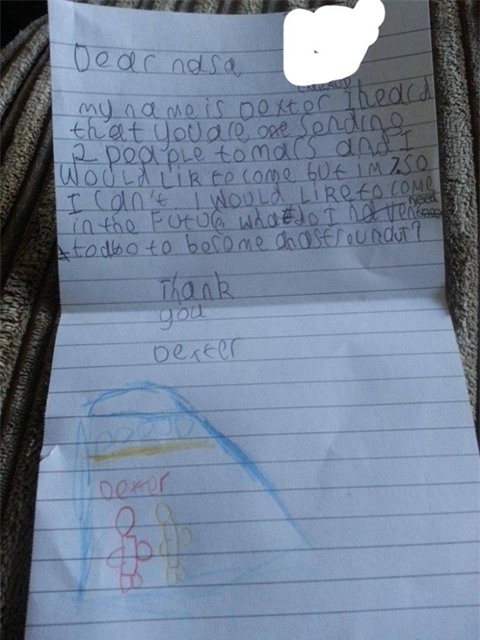 Dear nasa
my name is Dexter I heard
that you are sending
2 people to mars and I
WOULD LIKE to come but im 7 so
I can't I WOULD LIKE to come
in the future what do I need
to do to become an astrounaut?
Thank
you
Dexter
Dexter